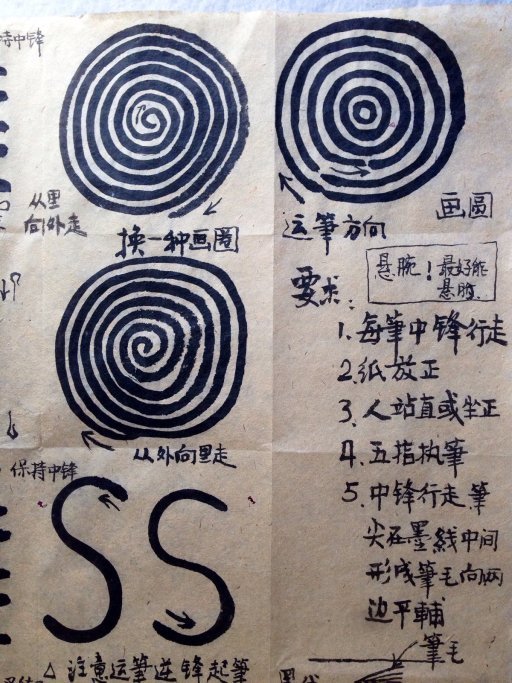 持中锋
从里
向外走
换一种画圈
运筆方向
画圆
悬腕！最好能
悬肘.
要求：
1. 每筆中锋行走
2. 纸放正
3. 人站直或坐正
4. 五指执筆
5. 中锋行走筆
尖在墨线中间
形成筆毛向两
边平輔
筆毛
从外向里走
保持中锋
SS
△ 注意运筆逆锋起筆